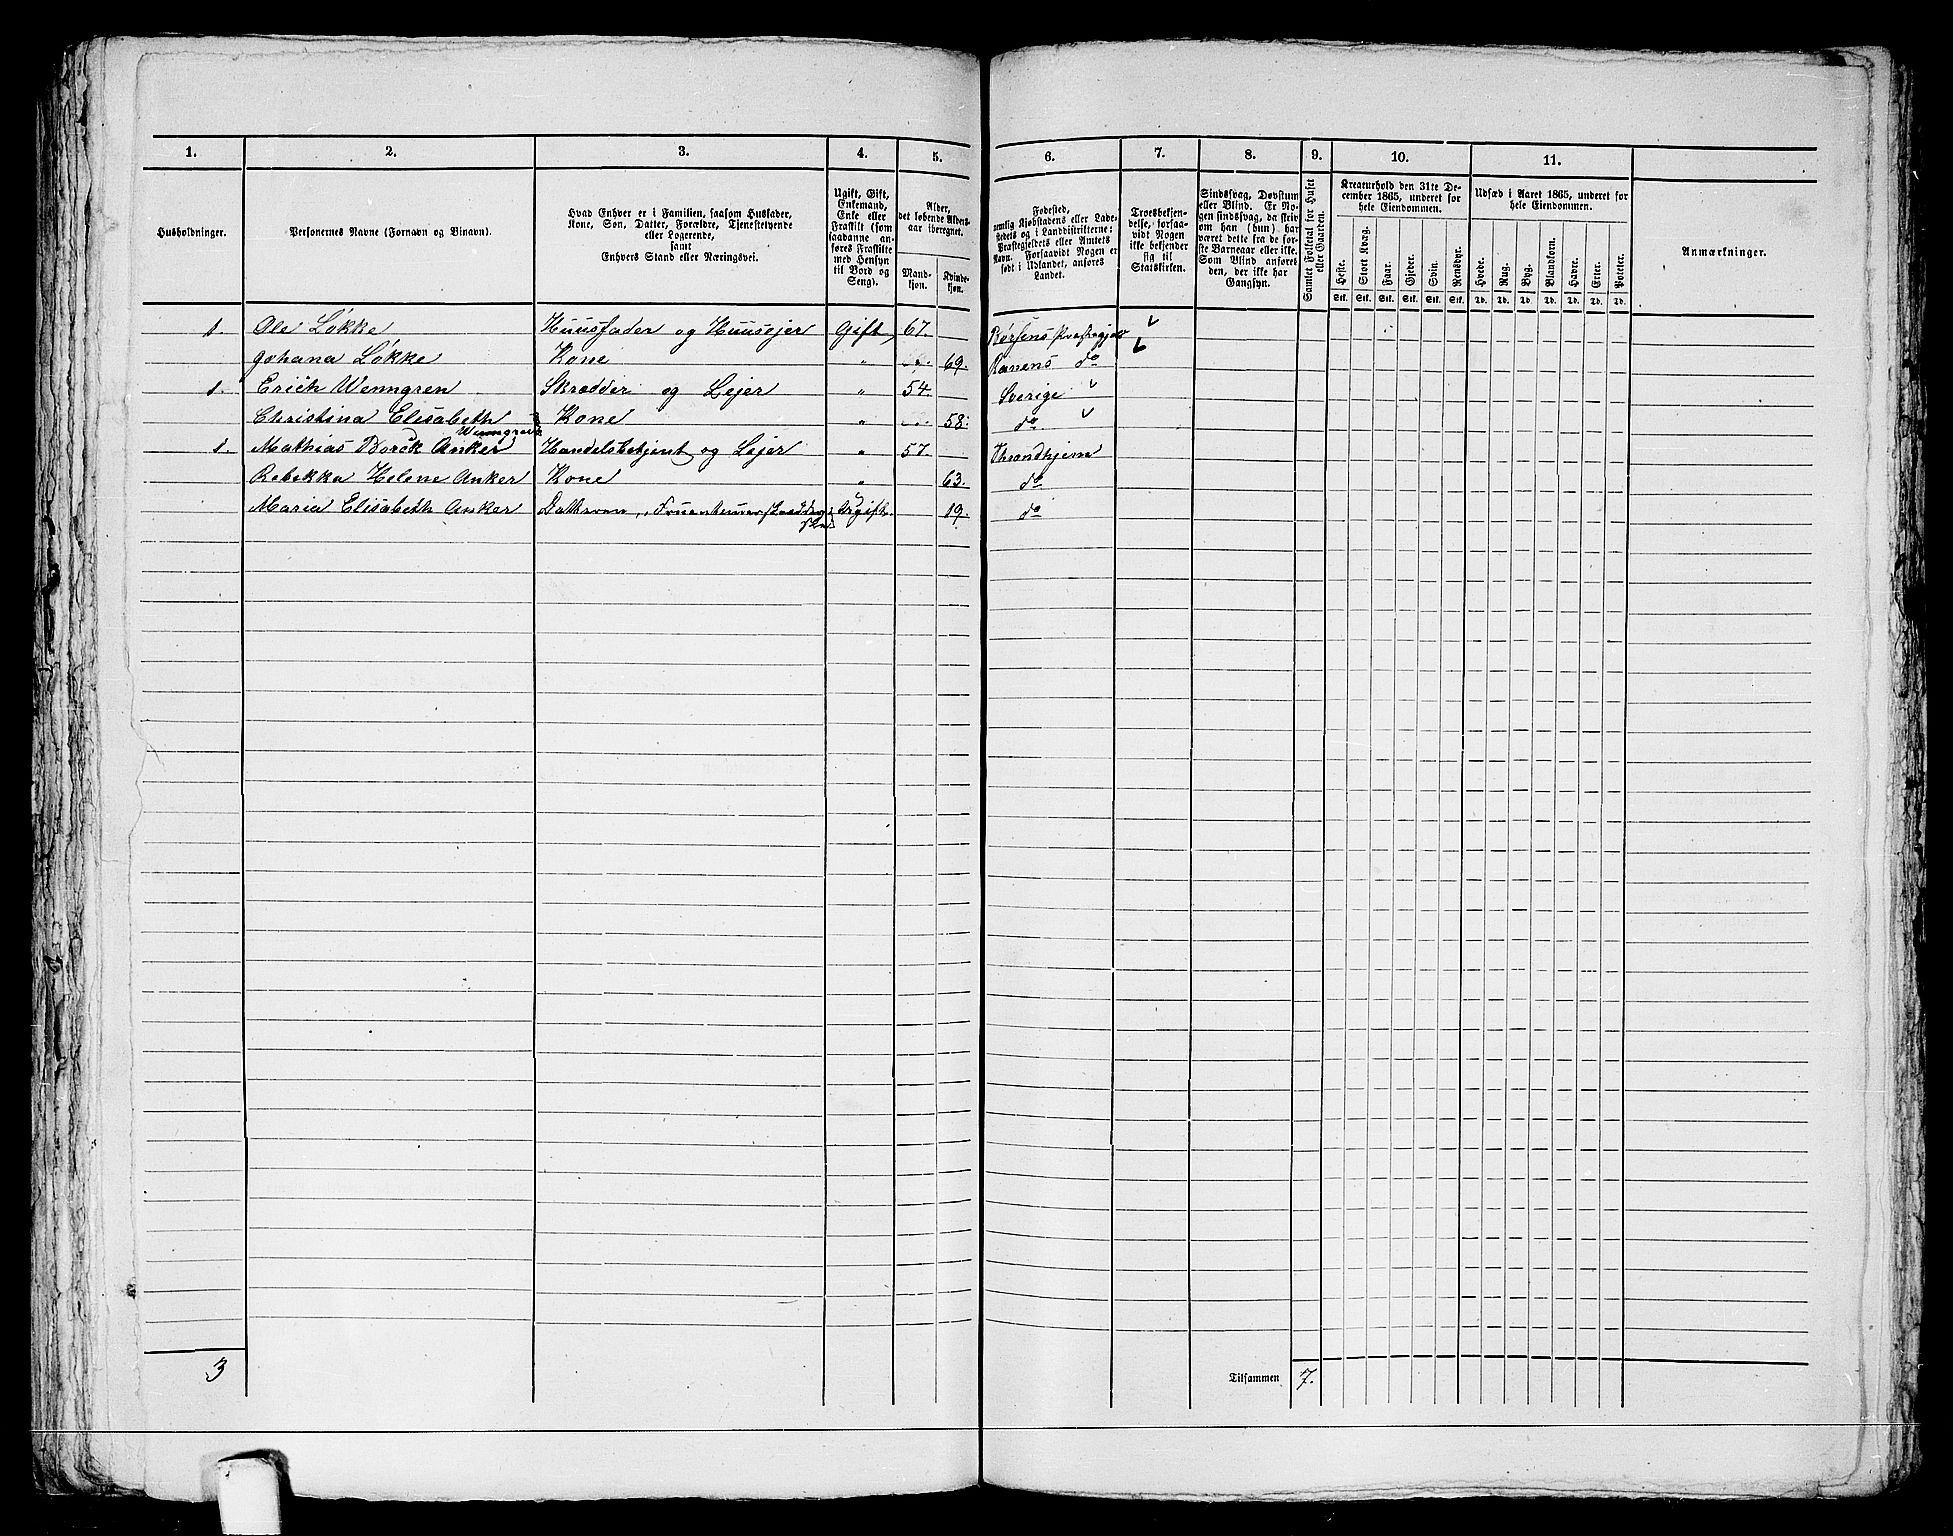 1. 2. 3. 4. 5. 6. 7. 8. 9. 10. 11.
Husholdninger.
Personernes Navne (Fornavn og Binavn).
Hvad Enhver er i Familien, saasom Husfader,
Kone, Søn, Datter, Forældre, Tjenestetyende
eller Logerende,
samt
Enhvers Stand eller Næringsvei.
Ugift, Gift,
Enkemand,
Enke eller
Fraskilt (som
saadanne an-
føres Fraskilte
med Hensyn
til Bord og
Seng).
Alder,
det løbende Alders-
aar iberegnet.
Mand-
kjøn.
Kvinde-
kjøn.
Fødested,
nemlig Kjøbstadens eller Lade-
stedets og i Landdistrikterne:
Præstegjeldets eller Amtets
Navn. Forsaavidt Nogen er
født i Udlandet, anføres
Landet.
Troesbekjen-
delse, forsaa-
vidt Nogen
ikke bekjender
sig til
Statskirken.
Sindssvag, Døvstum
eller Blind. Er No-
gen sindssvag, da skriv
om han (hun) har
været dette fra de før-
ste Barneaar eller ikke.
Som Blind anføres
den, der ikke har
Gangsyn.
Samlet Folketal for Huset
eller Gaarden.
Kreaturhold den 31te De-
cember 1865, underet for
hele Eiendommen.
Heste. Stort Kvæg. Faar. Gjeder. Svin. Rensdyr.
Stk. Stk. Stk. Stk. Stk. Stk.
Udsæd i Aaret 1865, underet for
hele Eiendommen.
Hvede. Rug. Byg. Blandkorn. Havre. Erter. Poteter.
Td. Td. Td. Td. Td. Td. Td.
Anmærkninger.
1. Ole Løkke Huusfader og Huusejer Gift 67. Børsens Præstegjæv
Johana Løkke Kone " 69. Ranens do
1. Erich Wenngren Skrædder og Lejer " 54. Sverige
Christina Elisabeth Kone " 58. do
Wenngren
1. Mathias Borck Anker Handelsbetjent og Lejer " 57. Throndhjem
Rebekka Helene Anker Kone " 63. do
Maria Elisabeth Anker Datteren Ugift. 19. do
3
Tilsammen 7.